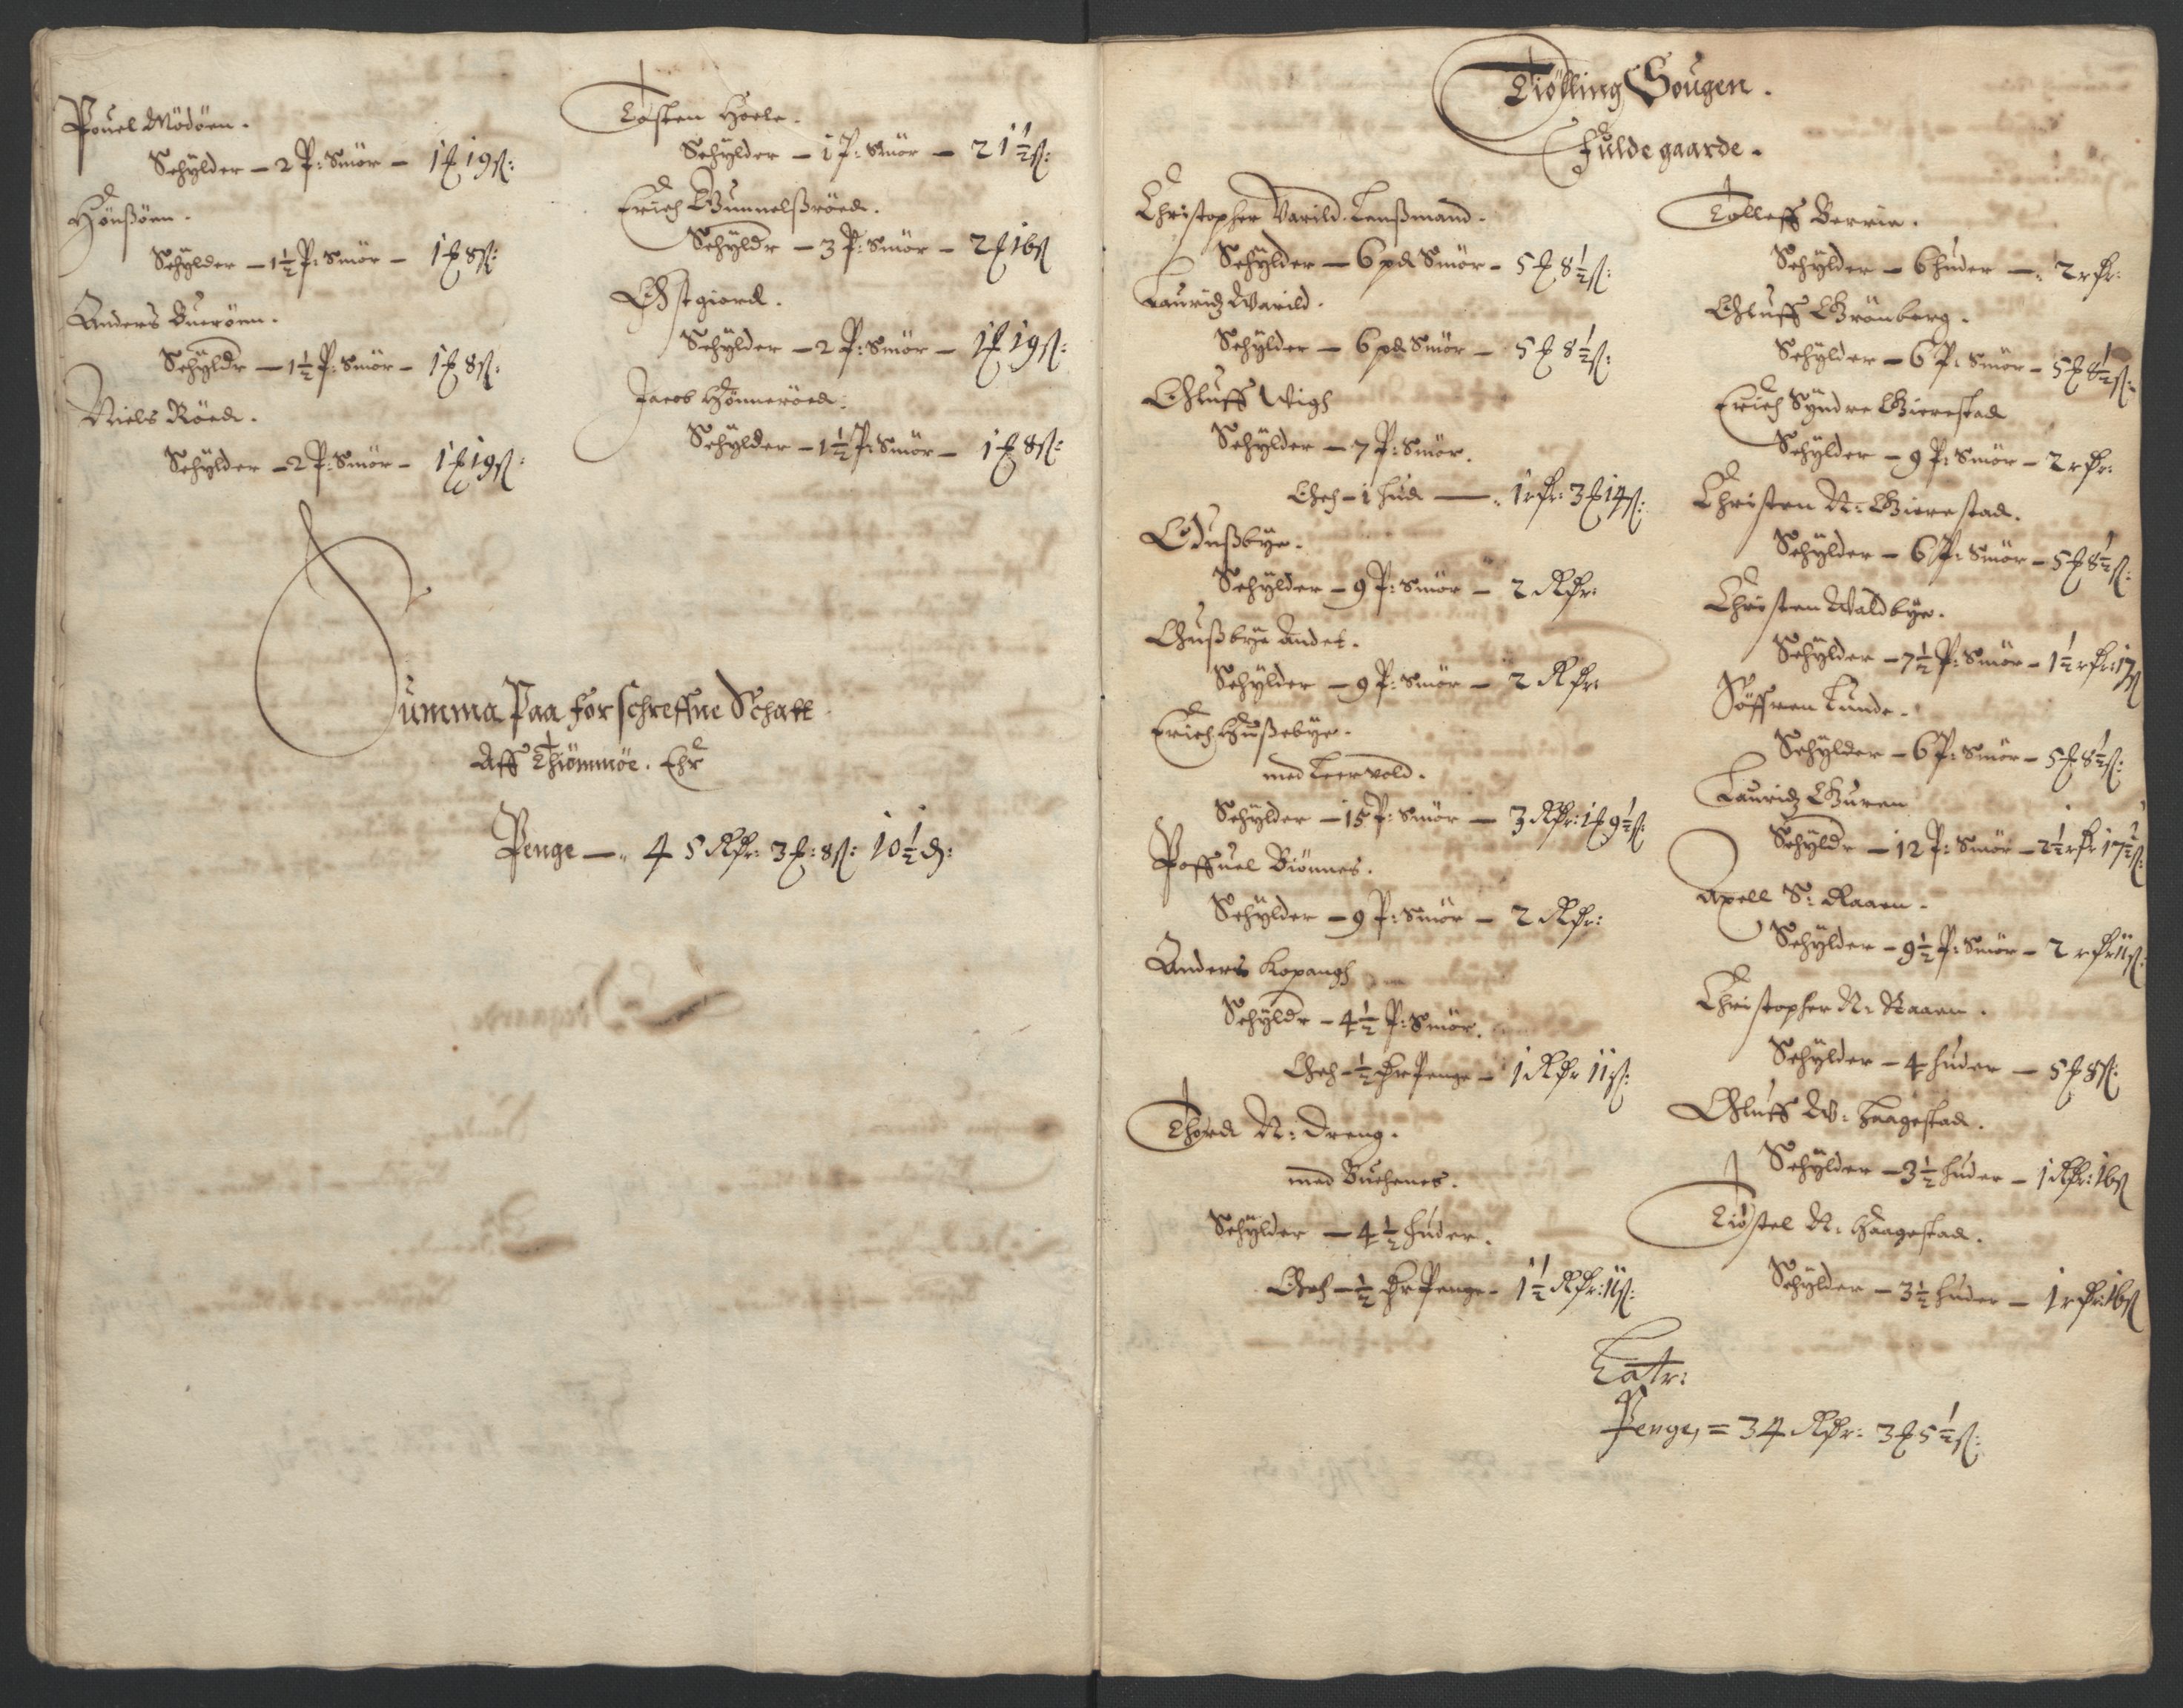 Pouel Mödöen.
Schylder – 2 P: Smör – 1 ₰ 19 ß:
Hönßöen.
Schylder – 1½ P: Smör – 1 ₰ 8 ß:
Anders Bueröen.
Schyldr – 1½ P: Smör – 1 ₰ 8 ß:
Niels Röed.
Schylder – 2 P: Smör – 1 ₰ 19 ß:
Tosten Hoele.
Schylder – 1 P: Smör – 21½ ß:
Erich Gunnelßröed.
Schyldr – 3 P: Smör – 2 ₰ 16 ß
Østgiord.
Schylder – 2 P: Smör – 1 ₰ 19 ß:
Jacob Hönneröed.
Schylder – 1½ P: Smör – 1 ₰ 8 ß:
Summa Paa forschreffne Schatt
Aff Thiömmöe. Ehr
Penge – 45 Rdr: 3 ₰: 8 ß: 10½ d:
Tiölling Sougen.
Fulde gaarde.
Christopher Varild. Lenßmand.
Schylder – 6 pd Smör – 5 ₰ 8½ ß:
Lauridz Warild.
Schylder – 6 pd Smör – 5 ₰ 8½ ß:
Oluff Wigh
Schylder – 7 P: Smör.
Och – 1 hud – 1 rdr: 3 ₰ 14 ß:
Ødußbye.
Schylder – 9 P: Smör – 2 Rdr:
Gußbye Andet.
Schylder – 9 P: Smör – 2 Rdr:
Erich Hußebye.
med Leervold.
Schylder – 15 P: Smör – 3 Rdr: 1 ₰ 9½ ß:
Poffuel Biönnes.
Schylder – 9 P: Smör – 2 Rdr:
Anders Kopangh
Schyldr – 4½ P: Smör.
Och – ½ dr Penge – 1 Rdr 11 ß:
Thord N: Dreng.
med Buchenes.
Schylder – 4½ huder.
Och – ½ dr Penge – 1½ Rdr: 11 ß:
Tolleff Berrie.
Schylder – 6 huder – 2 rdr:
Oluff Grönberg.
Schylder – 6 P: Smör – 5 ₰ 8½ ß:
Erich Syndre Gierestad
Schylder – 9 P: Smör – 2 rdr:
Christen N: Gierestad.
Schylder – 6 P: Smör – 5 ₰ 8½ ß:
Christen Waldbye.
Schylder – 7½ P: Smör – 1½ rdr: 17 ß
Söffren Lunde.
Schylder – 6 P: Smör – 5 ₰ 8½ ß:
Lauridz Guren
Schyldr – 12 P: Smör – 2½ rdr 17½ ß:
Axell S: Raaen.
Schylder – 9½ P: Smör – 2 rdr 11 ß:
Christopher N: Raaen.
Schylder – 4 huder – 5 ₰ 8 ß:
Oluff W: Haagestad.
Schylder – 3½ huder – 1 Rdr: 16 ß
Tiöstel N: Haagestad.
Schylder – 3½ huder – 1 rdr: 16 ß
Latr:
Penge, = 34 Rdr: 3 ₰ 5½ ß: